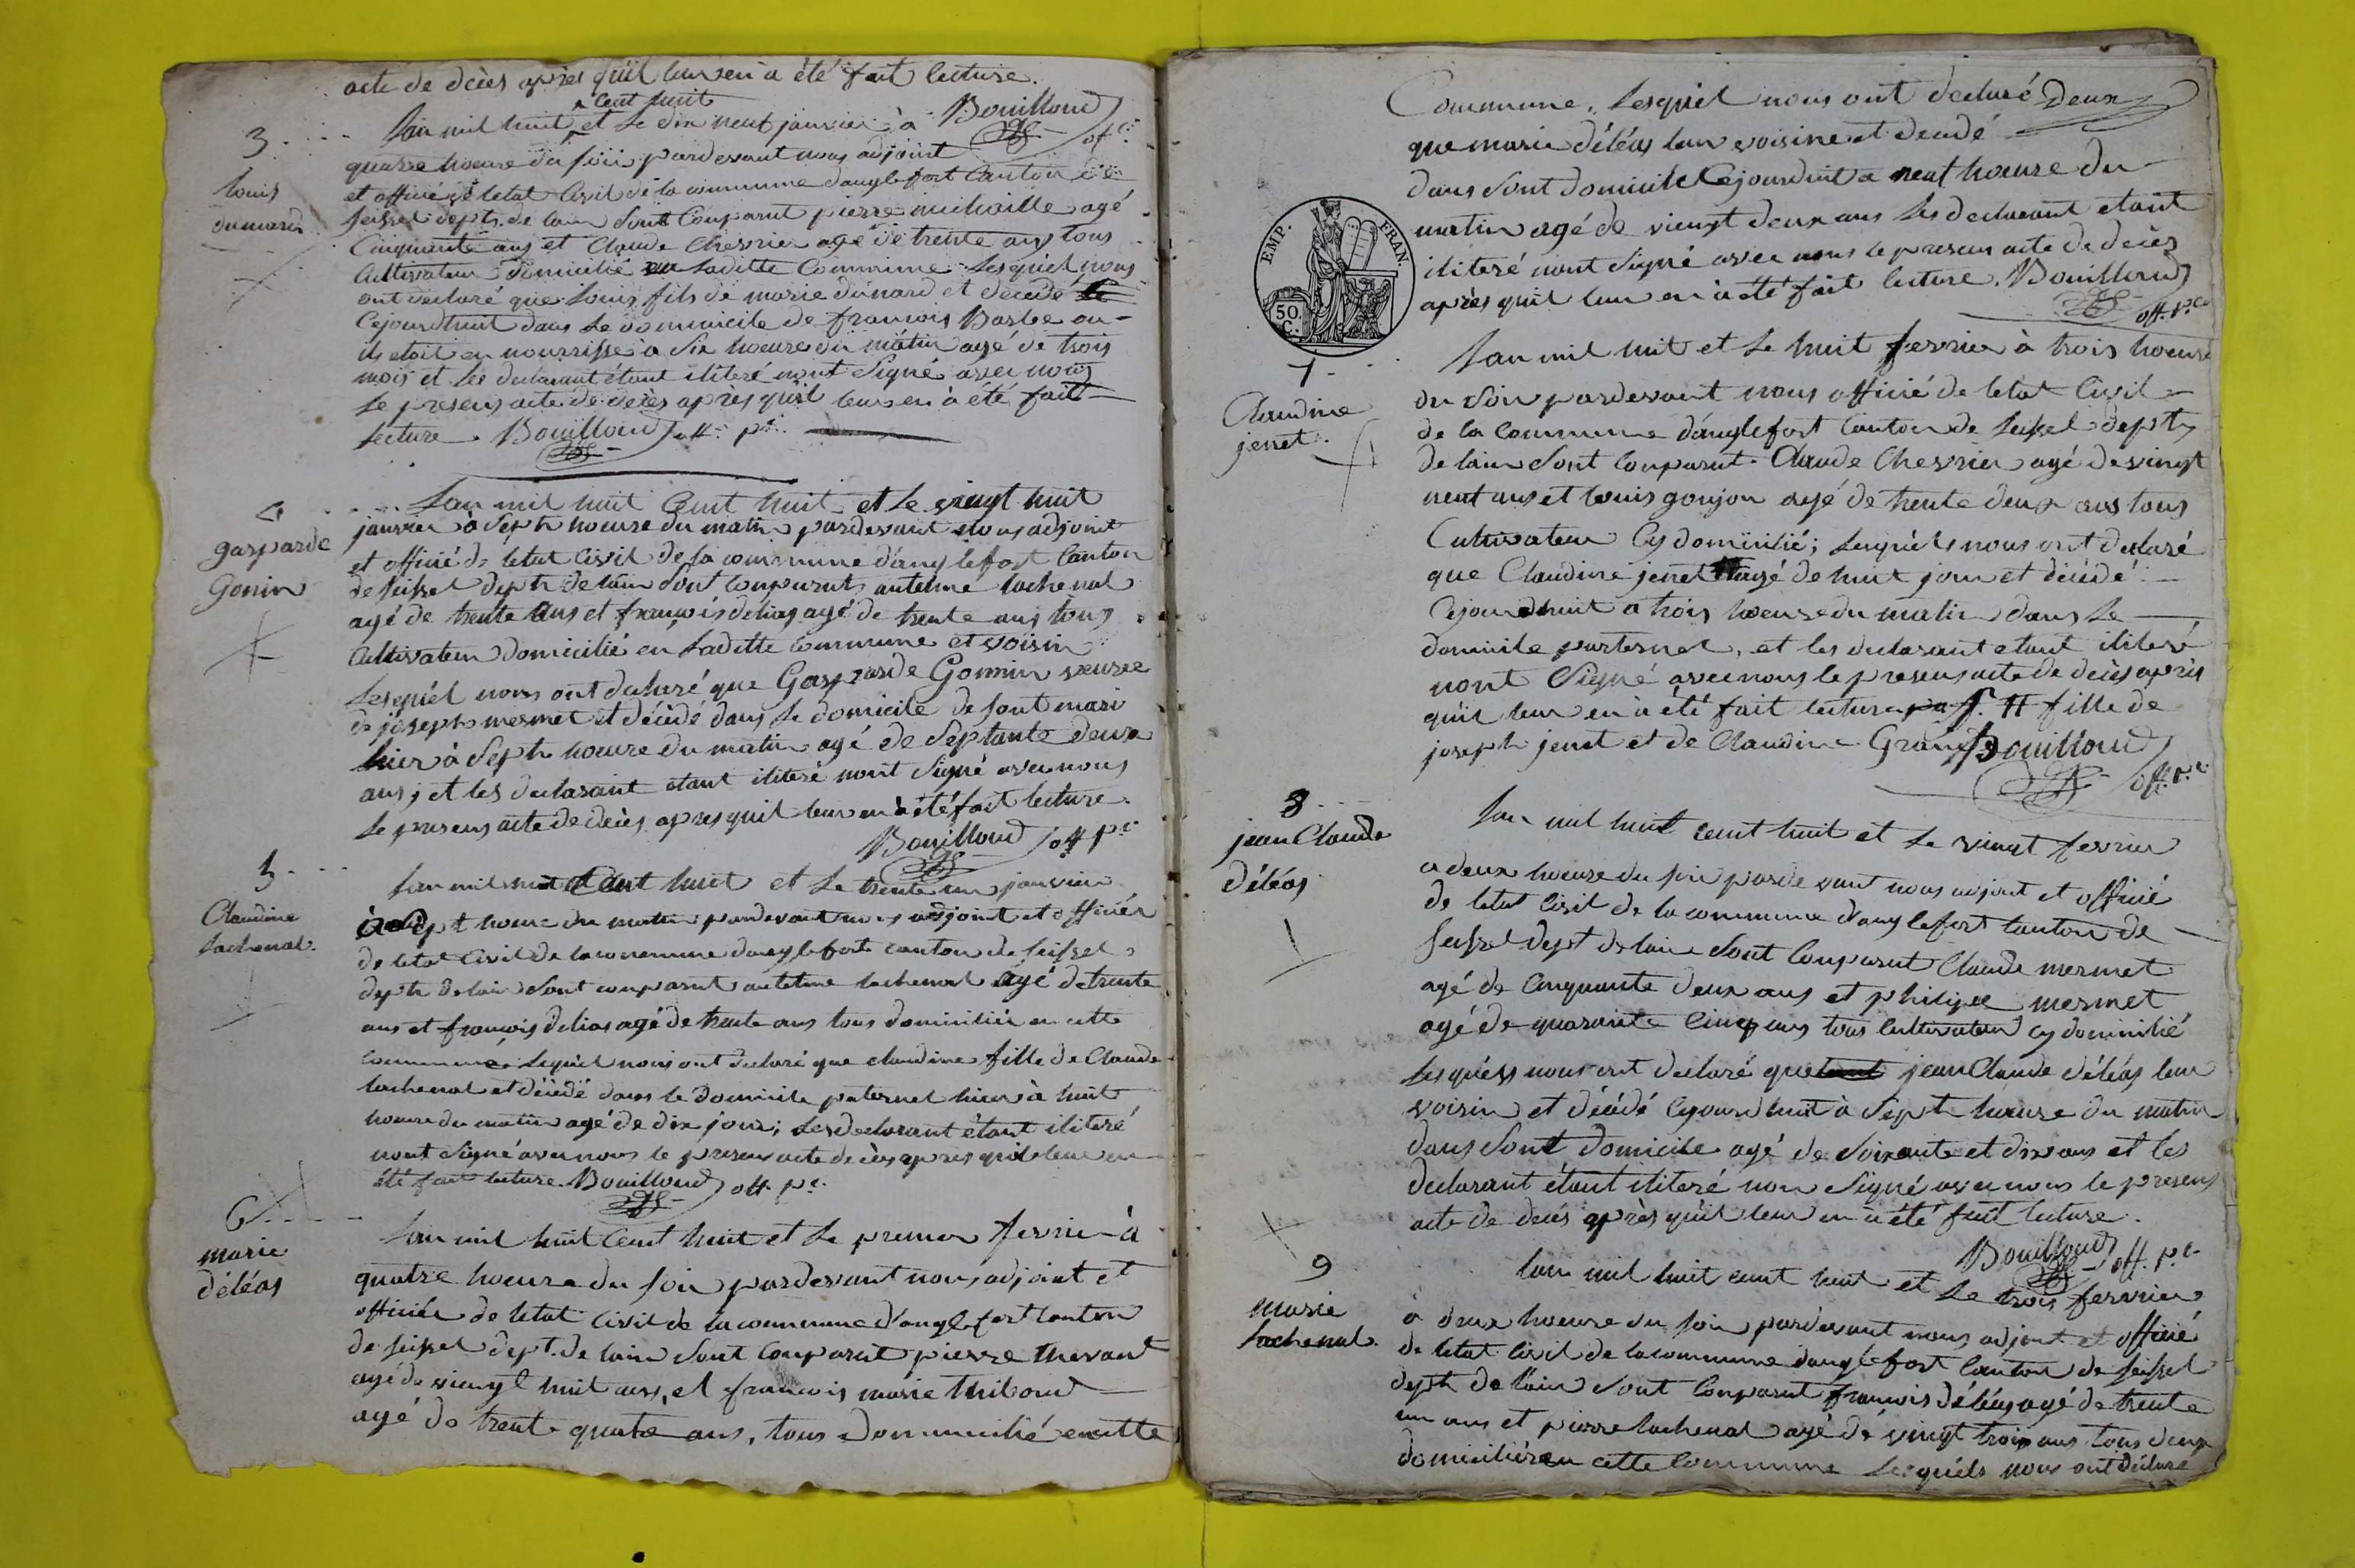 acte de dcès après qu'il leur en a été fait lecture.
Bouilloud
off. p.r
3
Louis
dunard
cent huit
L'an mil huit et le dix neuf janvier à
quatre hoeure du soir pardevant nous adjoint
et officié de letat Civil de la commune danglefort Canton de
seissel dept. de lain Sont Comparut pierre michaille agé
Cinquante ans et Claude Chevrier agé de trente ans tous
Cultivateur domicilié en laditte Commune Lesquiel nous
ont declaré que Louis fils de marie dunard et decedé
Cejourdhuit dans le dommicile de francois Barbe ou
ils etoit en nourrisse à Six hoeure du mátin agé de trois
mois et les declarant étant iliteré nont Signé avec nous
le presens acte de décès après quil leur en à été fait
lecture. Bouilloud off. p.r
4
gasparde
Gonin
Lan mil huit Cent huit et le vieingt huit
janvier à Sept hoeure du matin pardevant nous adjoint
et officié de letat Civil de la commune danglefort Canton
de seissel dept. de lain Sont Comparut antelme lachenal
agé de trente ans et francois deléas agé de trente ans tous
Cultivateur domicilié en Laditte Commune et voisin
Lesquiel nous ont declaré que Gasparde Gonnin veuve
de joseph mermet et décédé dans le domicile de sont mari
hier à Sept hoeure du matin agé de Septante deux
ans, et les declarant etant iliteré nont Signé avec nous
le presens acte de décès apres quil leur en à été fait lecture.
Bouilloud off. p.r
5
Claudine
Lachenal.
Lan mil huit Cent huit et le trente un janvier
à Sept hoeure du matin pardevant nous adjoint et officiér
de letat Civil de la commune danglefort canton de Seissel
dept. de lain Sont comparut antelme lachenal agé de trente
ans et francois deléas agé de trente ans tous domicilié en cette
Commune, Lequiel nous ont declaré que claudine fille de Claude
lachenal et décédé dans le Domicile paternel hier à huit
hoeure du matin agé de dix jour; Les declarant étant iliteré
nont Signé avec nous le presens acte de cès apres quil leur en
été fait lecture. Bouilloud off. p.r
6
marie
déléas
Lan mil huit Cent huit et le premier fevrier à
quatre hoeure du soir pardevant nous adjoint et
officiér de letat Civil de la commune d'anglefort Canton
de seissel dept. de lain Sont Comparut pierre thevant
agé de vieingt huit ans, et francois marie thiboud
agé de trente quatre ans, tous dommicilié en cette
Commune. Lesquiel nous ont declaré
Deux
que marie déléas leur voisine et decedé
dans Sont domicile Cejourdhuit a neuf hoeure du
matin agé de vieingt deux ans Les declarant etant
iliteré nont Signé avec nous le presens acte de décès
après quil leur en à été fait lecture. Bouilloud
off. p.r
EMP. FRAN.
50.
C.
7
Claudine
jenet.
Lan mil huit et le huit fevrier à trois hoeure
du Soir pardevant nous officié de letat Civil
de la Commune d'anglefort Canton de Seissel dept.
de lain Sont Comparut Claude Chevrier agé de vingt
neuf ans et Louis goujon agé de trente deux ans tous
Cultivateur Cy domicilié; Lesquiels nous ont declaré
que Claudine jenet H agé de huit jour et décédé
Cejourdhuit a trois hoeure du matin dans le
domicile paternel, et les declarant etant iliteré
nont Signé avec nous le presens acte de décès après
quil leur en à été fait lecture. H fille de
joseph jenet et de Claudine Grand Bouilloud
off. p.r
8
jean Claude
déléas
Lan mil huit cent huit et le vingt fevrier
a deux hoeure du soir pardevant nous adjoint et officié
de letat Civil de la commune danglefort Canton de
Seissel dept de lain Sont Comparut Claude mermet
agé de Cinquante deux ans et philippe mermet
agé de quarante Cinq ans tous Cultivateur cy domicilié
Lesquels nous ont declaré que jean Claude déléas leur
voisin et décédé Cejourdhuit à Sept hoeure du matin
dans Sont domicile agé de Soixante et dix ans et les
declarant étant iliteré non Signé avec nous le presens
acte de décès après quil leur en à été fait lecture.
Bouilloud off. p.r
9
Marie
Lachenal.
Lan mil huit cent huit et le trois fevrier
à deux hoeure du soir pardevant nous adjoint et officié
de letat Civil de la commune danglefort Canton de seissel
dept. de lain Sont Comparut francois déléas agé de trente
un ans et pierre lachenal agé de vingt trois ans tous deux
domiciliér en cette Commune Lesquiels nous ont declaré